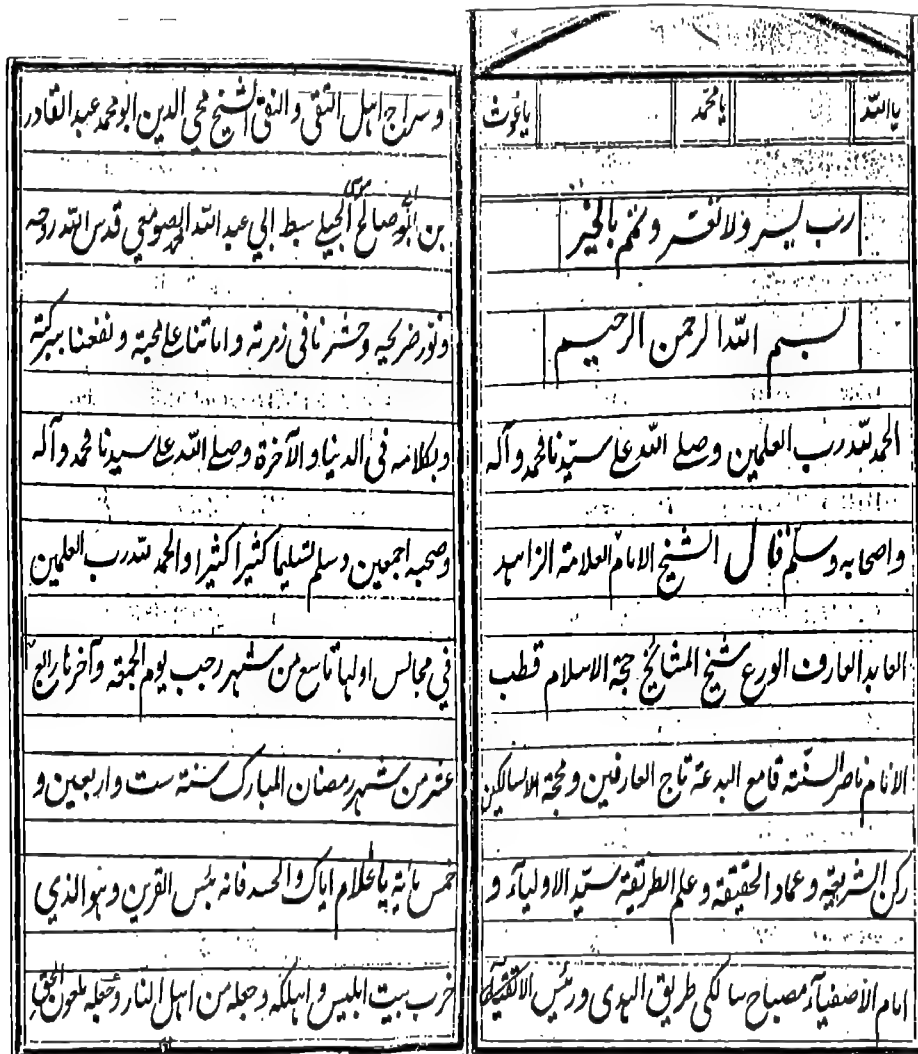 يا الله يا محمد يا غوث
رب يسر ولا تعسر وتمم بالخير
بسم الله الرحمن الرحيم
الحمد لله رب العلمين وصلے الله علے سيّدنا محمد وآله
واصحابه وسلّم قال الشيخ الامام العلامة الزاهد
العابد العارف الورع شيخ المشائخ حجة الاسلام قطب
الانام ناصر السنّة قامع البدعة تاج العارفين وحجة الاسالكين
ركن الشريعة وعماد الحقيقة وعلم الطريقة سيّد الاولياء و
امام الاصفياء مصباح سالكى طريق الهدى ورئيس الاتقياء
وسراج اهل التقى والنقى الشيخ محي الدين ابو محمد عبد القادر
بن ابو صالح موسى الجيلے سبط ابي عبد الله الصومعي قدس الله روحه
ونور ضريحيه وحشرنا فى زمرته واماتنا علے محبة ونفعنا ببركة
وبكلامه فى الدنيا والآخرة وصلے الله علے سيدنا محمد وآله
وصحبه اجمعين وسلم تسليما كثيرا كثيرا والحمد لله رب العلمين
في مجالس اولها تاسع من شهر رجب يوم الجمعة وآخرها رابع
عشر من شهر رمضان المبارك سنة ست واربعين و
خمس مائة يا غلام اياك والحسد فانه بئس القرين وهو الذي
خرب بيت ابليس واهلكه وجعله من اهل النار وجعله ملعون الحق